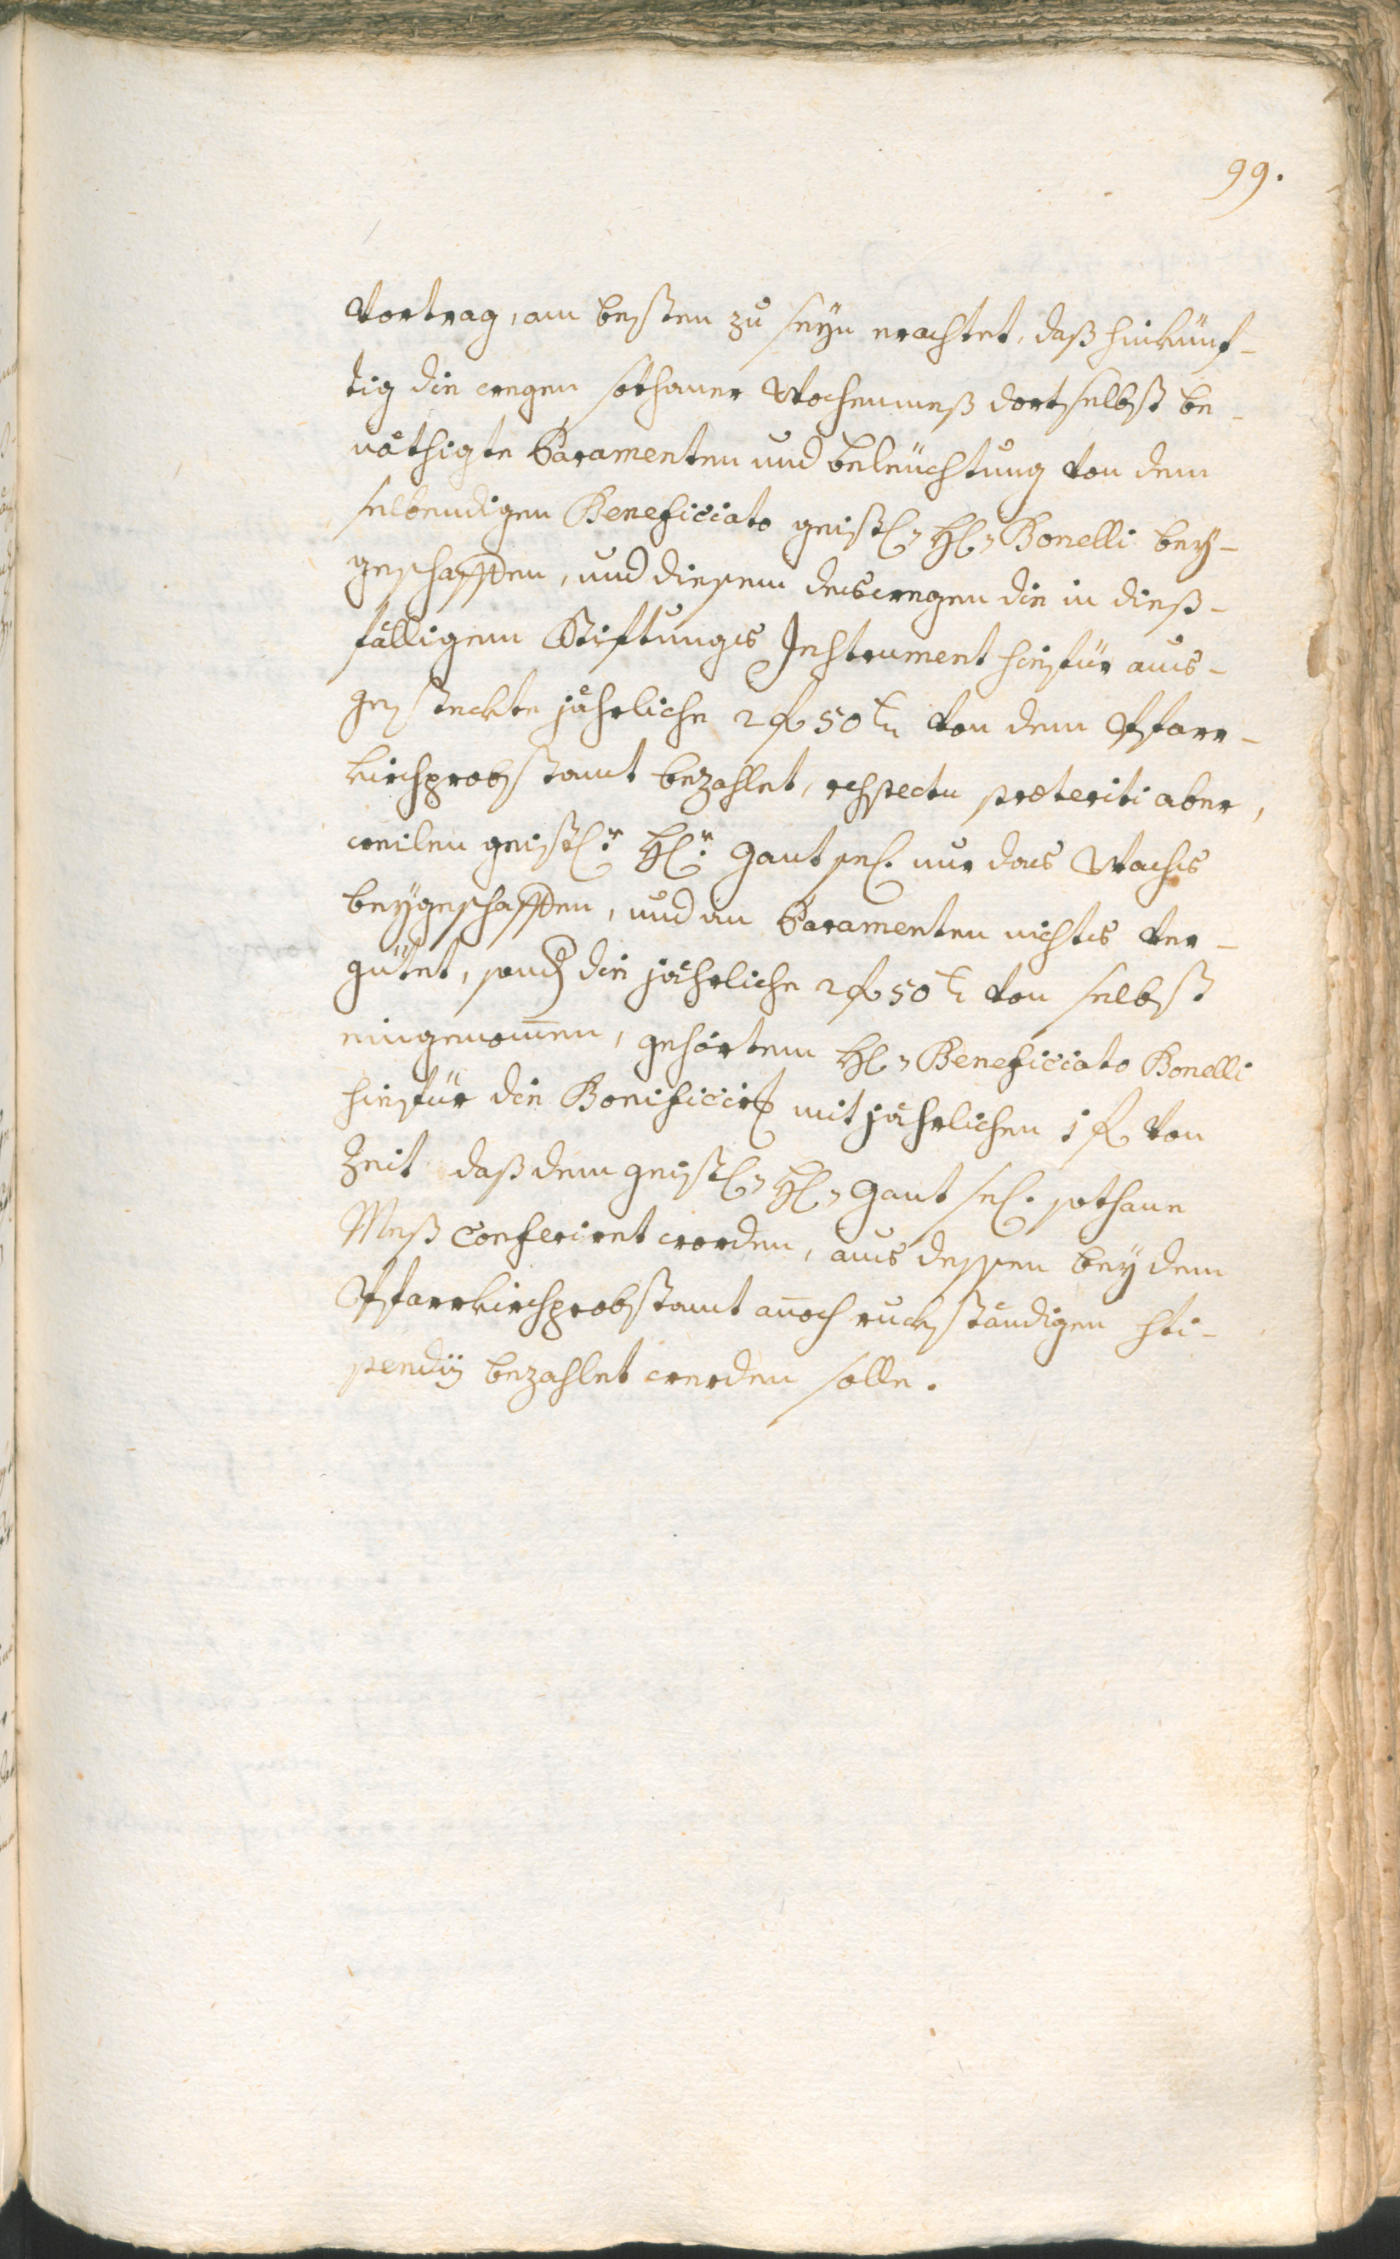 99.
Vortrag, am besten zu seyn erachtet, daß hinkünf-
tig die wegen sothaner Wochenmeß dortselbst be-
nöthigte Paramenten und beleüchtung von dem
selbendigen Beneficiato geistl: H: Bonelli bey-
geschaffen, und diesem deswegen die in dieß-
fälligem Stiftungs Instrument hiefür aus-
gesteckte jährliche 2 f 50 kr von dem Pfarr-
kirchprobstamt bezahlet, respectu præteriti aber,
weilen geistl:r H:r Gant sel. nur das Wachs
beygeschaffen, und an Paramenten nichts ver-
gütet, sond: die jährliche 2 f 50 kr von selbst
eingenom̄en, gehörtem H: Beneficiato Bonelli
hiefür die Bonificirg mit jährlichen 1 f von
Zeit daß dem geistl: H: Gant sel. sothane
Meß conferiret worden, aus dessen bey dem
Pfarrkirchprobstamt an̄och ruckständigen sti-
pendij bezahlet werden solle.